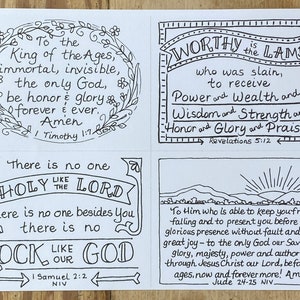 To the
King of the Ages,
immortal, invisible,
the only God,
be honor & glory
forever & ever.
Amen
1 Timothy 1:
WORTHY is the LAMB
who was slain,
to receive
Power and Wealth and
Wisdom and Strength and
Honor and Glory and Praise
Revelations 5:12
There is no one
HOLY LIKE THE LORD
there is no one besides You
there is no
ROCK LIKE OUR GOD
1 Samuel 2:2
NIV
To Him who is able to keep you from
falling and to present you before
glorious presence without fault and
great joy - to the only God our
glory, majesty, power and
through Jesus Christ our Lord, before
ages, now and forever more!
Jude 24-25 NIV